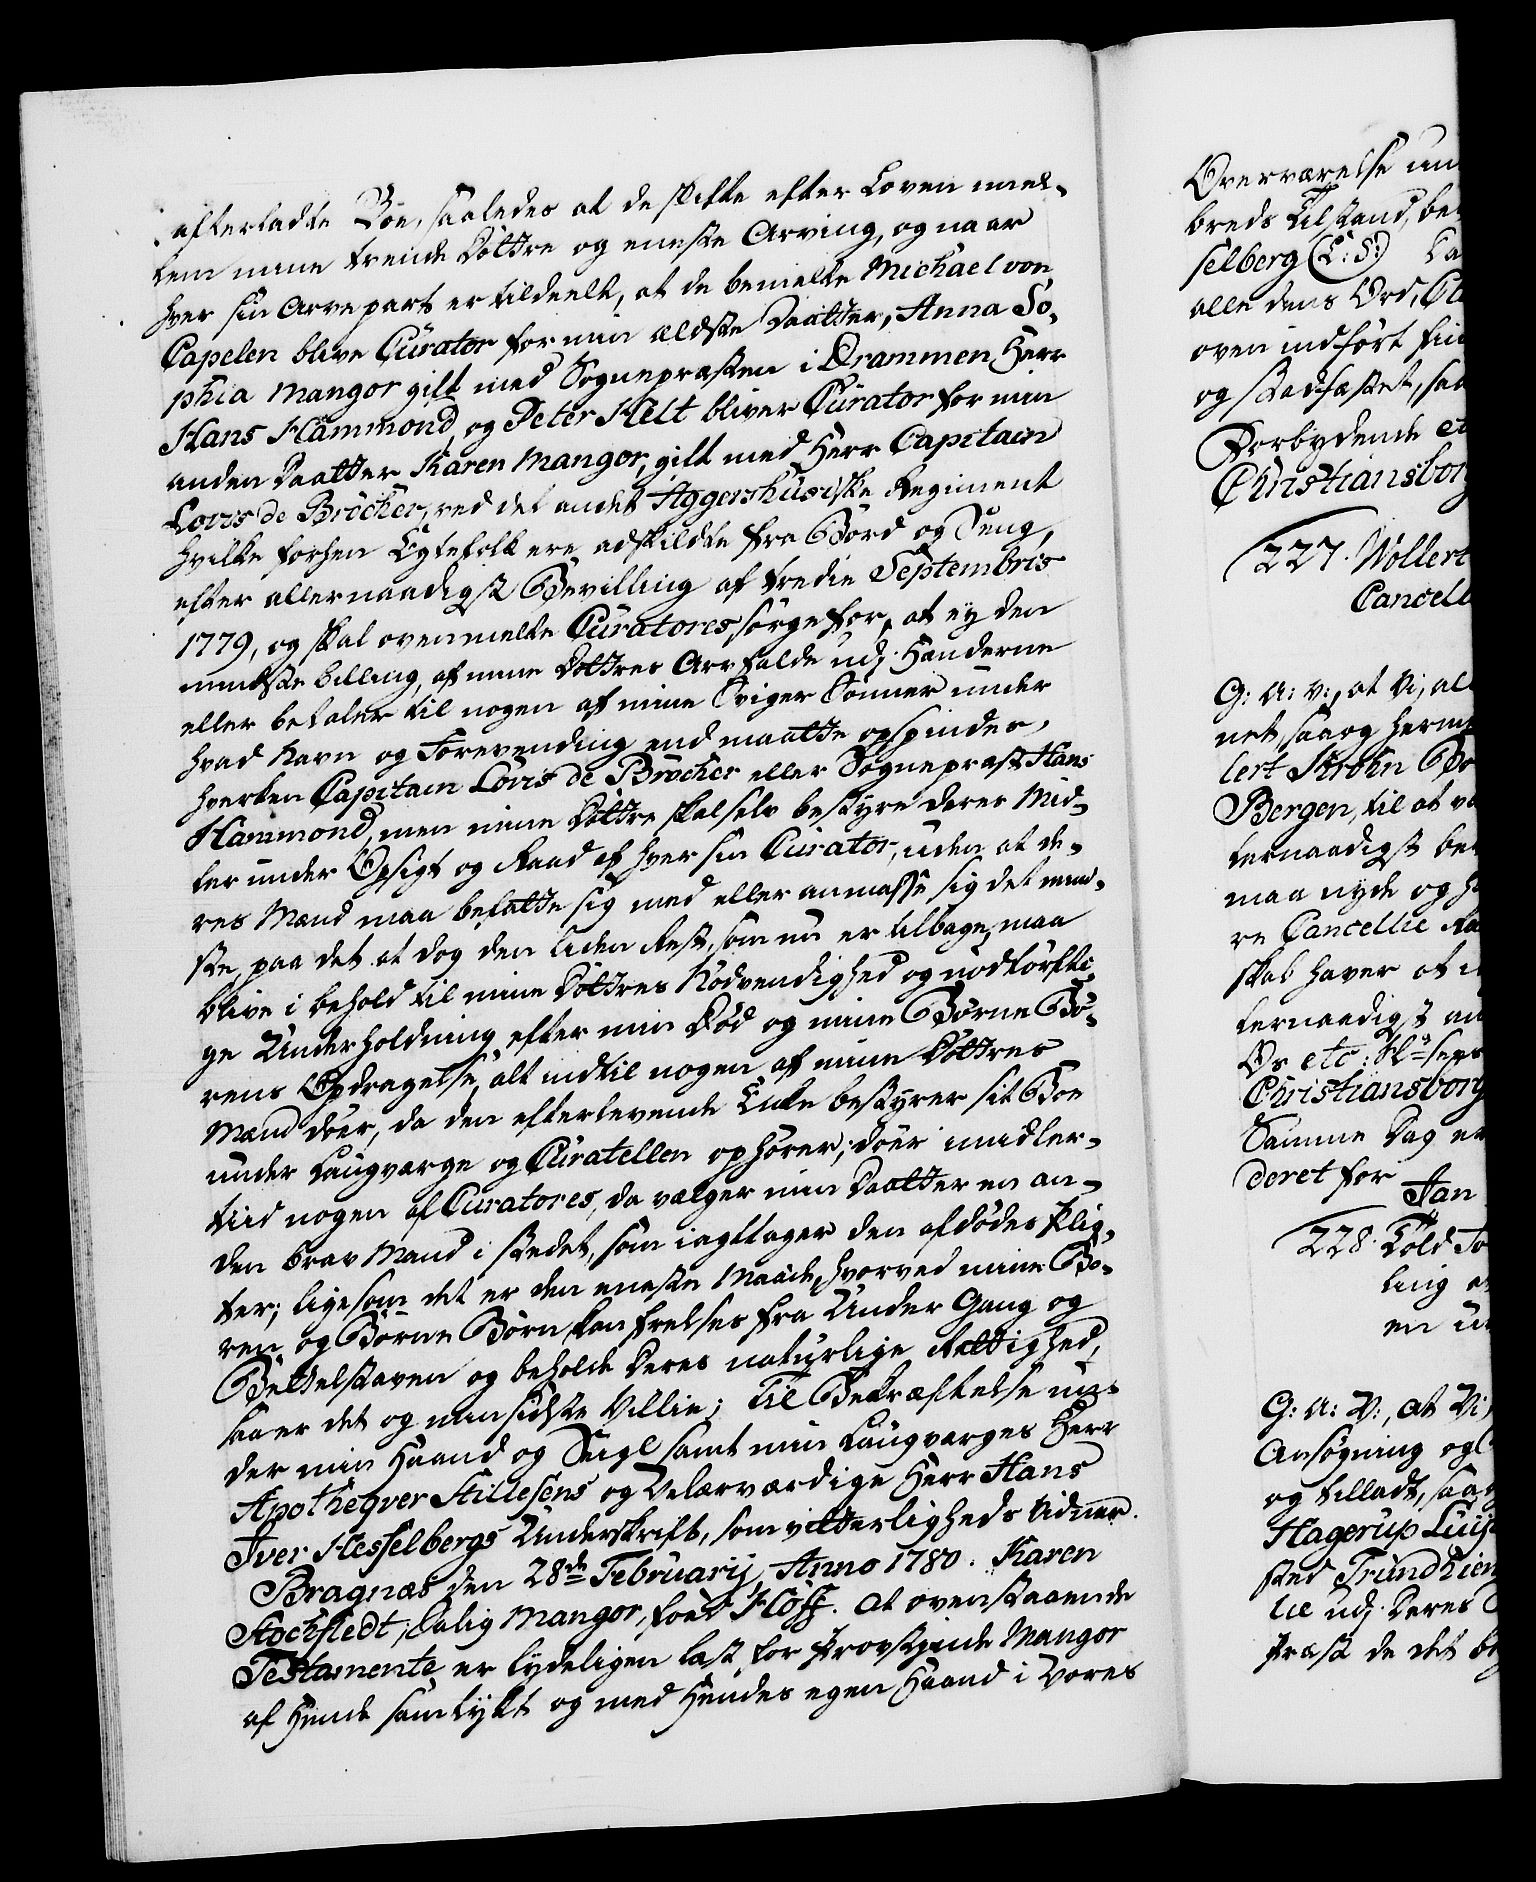 efterladte Boe, saaledes at de skifte efter Loven imel-
lem mine trende Döttre og eneste Arving, og naar
hver sin Arvepart er tildeelt, at da bemelte Michael von
Capelen blive Curator for min ældste Daatter, Anna So-
phia Mangor gift med Sognepræsten i Drammen Herr
Hans Hammond, og Peter Kelt bliver Curator for min
anden Daatter Karen Mangor, gift med Herr Capitain
Lovis de Brücher, ved det andet Aggershusiske Regiment
hvilke forhen Egtefolk ere adskildte fra Bord og Seng,
efter allernaadigst Bevilling af tredie Septembris
1779, og skal ovenmelte Curatores, sörge for, at ey den
mindste billing, af mine Döttres Arv falde udj Hænderne
eller betales til nogen af mine Sviger Sönner under
hvad Navn og Forevending end maatte opfindes,
hverken Capitain Lovis de Brücher eller Sognepræst Hans
Hammond, men mine Döttre skal selv bestyre deres Mid-
ler under Opsigt og Raad af hver sin Curator, uden at de-
res Mænd maa befatte sig med eller anmasse sig det mind-
ste, paa det at dog den liden Rest, som nu er tilbage, maa
blive i behold til mine Döttres Nödvendighed og nödtörfti-
ge Underholdning efter min Död og mine Börne Bö-
rens Opdragelse, alt indtil nogen af mine Döttres
Mænd döer, da den efterlevende Enke bestyrer sit Boe
under Laugværge og Curatellen ophörer; döer imidler-
tiid nogen af Curatores, da vælger min Daatter en an-
den brav Mand i stedet, som iagttager den afdödes Plig-
ter; ligesom det er den eneste Maade, hvorved mine Bö-
ren og Börne Börn kan frelses fra Under Gang og
Bettelstaven og beholde deres naturlige Rettighed,
saa er det og min sidste Villie; Til Bekræftelse un-
der min Haand og Seigl samt min Laugværges Herr
Apotheqver Stillesens og Velærværdige Herr Hans
Iver Hesselbergs Underskrift, som vitterligheds Vidner.
Bragnæs den 28de Februarij, Anno 1780. Karen
Stochfledt, Salig Mangor, föed Höff. At ovenstaaende
Testamente er lydeligen læst for Provstinde Mangor
af Hende samtykt og med Hendes egen Haand i Vores
Overværelse un
breds Tilstand, be
selberg (L: S:) La
alle dens Ord, Cla
oven indfört fin
og stadfæstet, saa
Forbydende et
Christiansborg
227. Wollert
Cancell
G: A: V:, at Vi, al
net, saa og herm
lert Krohn Bo
Bergen, til at væ
lernaadigst be
maa nyde og h
re Cancellie Ra
skal haver at i
lernaadigst an
Os etc:
Christiansborg
Samme Dag er
deret for Jan
228. Told
ling
en u
G: A: V:, at Vi,
Ansögning og
og tilladt, saa
Hagerup Luis
sted Trundhiem
lie udj deres
Præst de det be